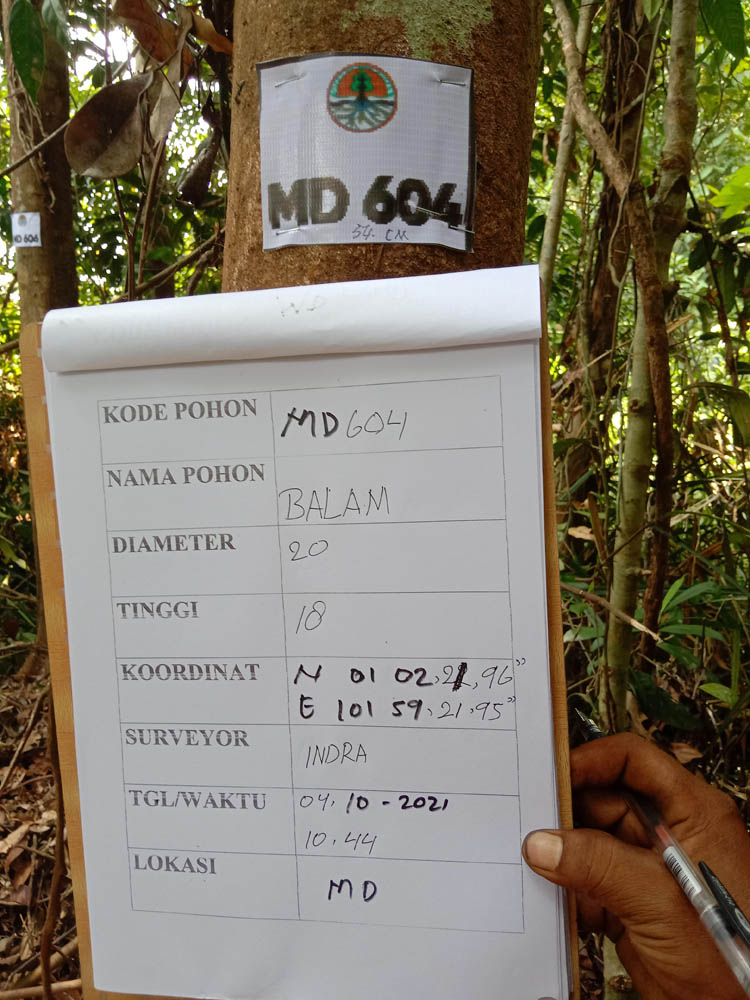 MD 604
54 CM
MD 606
KODE POHON MD 604
NAMA POHON BALAM
DIAMETER 20
TINGGI 18
KOORDINAT N 01 02,21,96"
E 101 59,21,95"
SURVEYOR INDRA
TGL/WAKTU 04.10-2021
10.44
LOKASI MD